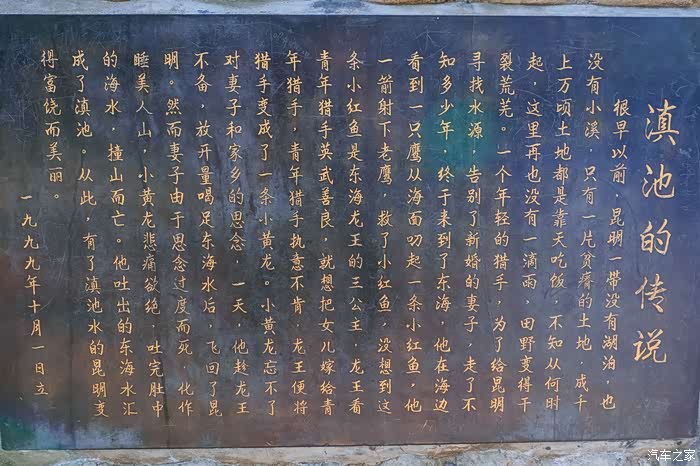 滇池的传说
很早以前,昆明一带没有湖泊,也
没有小溪,只有一片贫瘠的土地 成千
上万顷土地都是靠天吃饭,不知从何时
起,这里再也没有一滴雨,田野变得干
裂荒芜。一个年轻的猎手,为了给昆明
寻找水源,告别了新婚的妻子,走了不
知多少年,终于来到了东海,他在海边
看到一只鹰从海面叨起一条小红鱼,他
一箭射下老鹰,救了小红鱼,没想到这
条小红鱼是东海龙王的三公主,龙王看
青年猎手英武善良,就想把女儿嫁给青
年猎手,青年猎手执意不肯,龙王便将
猎手变成了一条小黄龙。小黄龙忘不了
对妻子和家乡的思念 一天,他趁龙王
不备,放开量喝足东海水后,飞回了昆
明。然而妻子由于思念过度而死,化作
睡美人山,小黄龙悲痛欲绝,吐完肚中
的海水,撞山而亡。他吐出的东海水汇
成了滇池。从此,有了滇池水的昆明变
得富饶而美丽。
一九九九年十月一日立
汽车之家